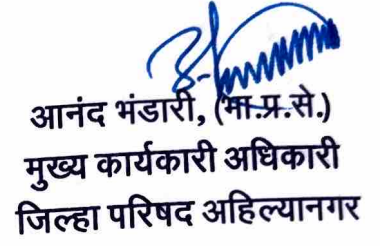 आनंद भंडारी, (भा.प्र.से.)
मुख्य कार्यकारी अधिकारी
जिल्हा परिषद अहिल्यानगर